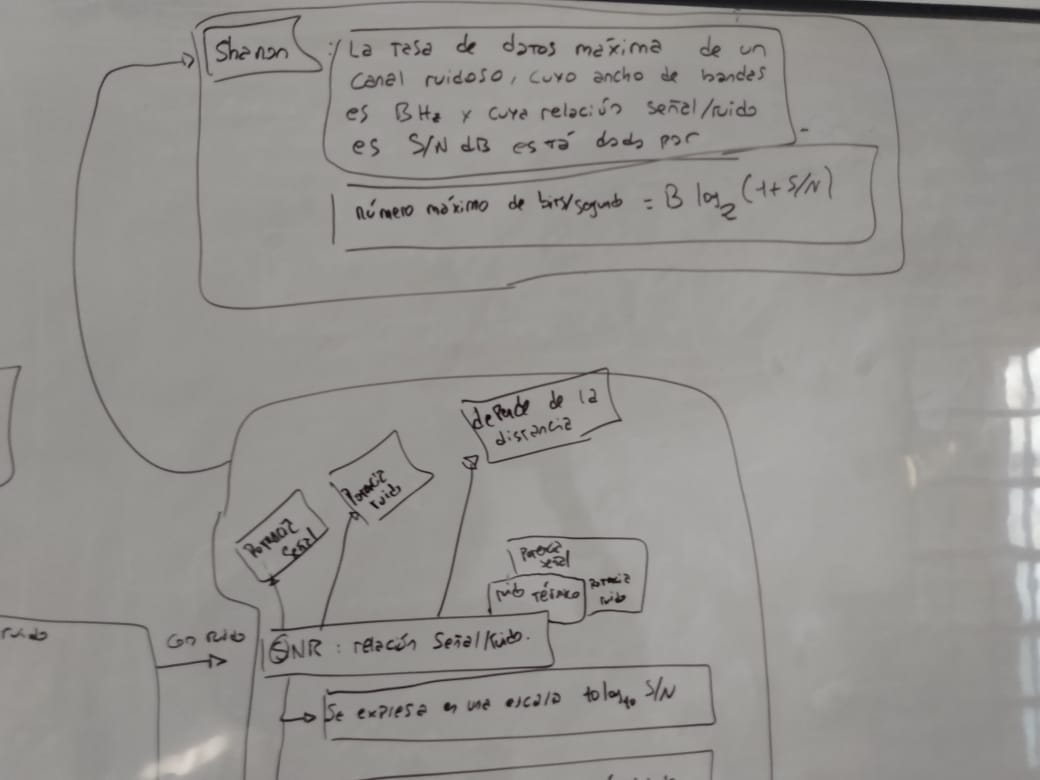 Shanon
: La tasa de datos máxima de un
canal ruidoso, cuyo ancho de bandas
es B Hz y cuya relación señal/ruido
es S/N dB está dada por
número máximo de bits/segundo = B log₂ (1+S/N)
depende de la
distancia
Potencia
ruido
Potencia
señal
Potencia
señal
ruido térmico
Potencia
ruido
ruido
Con ruido
SNR : relación Señal/Ruido.
Se expresa en una escala 10 log₁₀ S/N